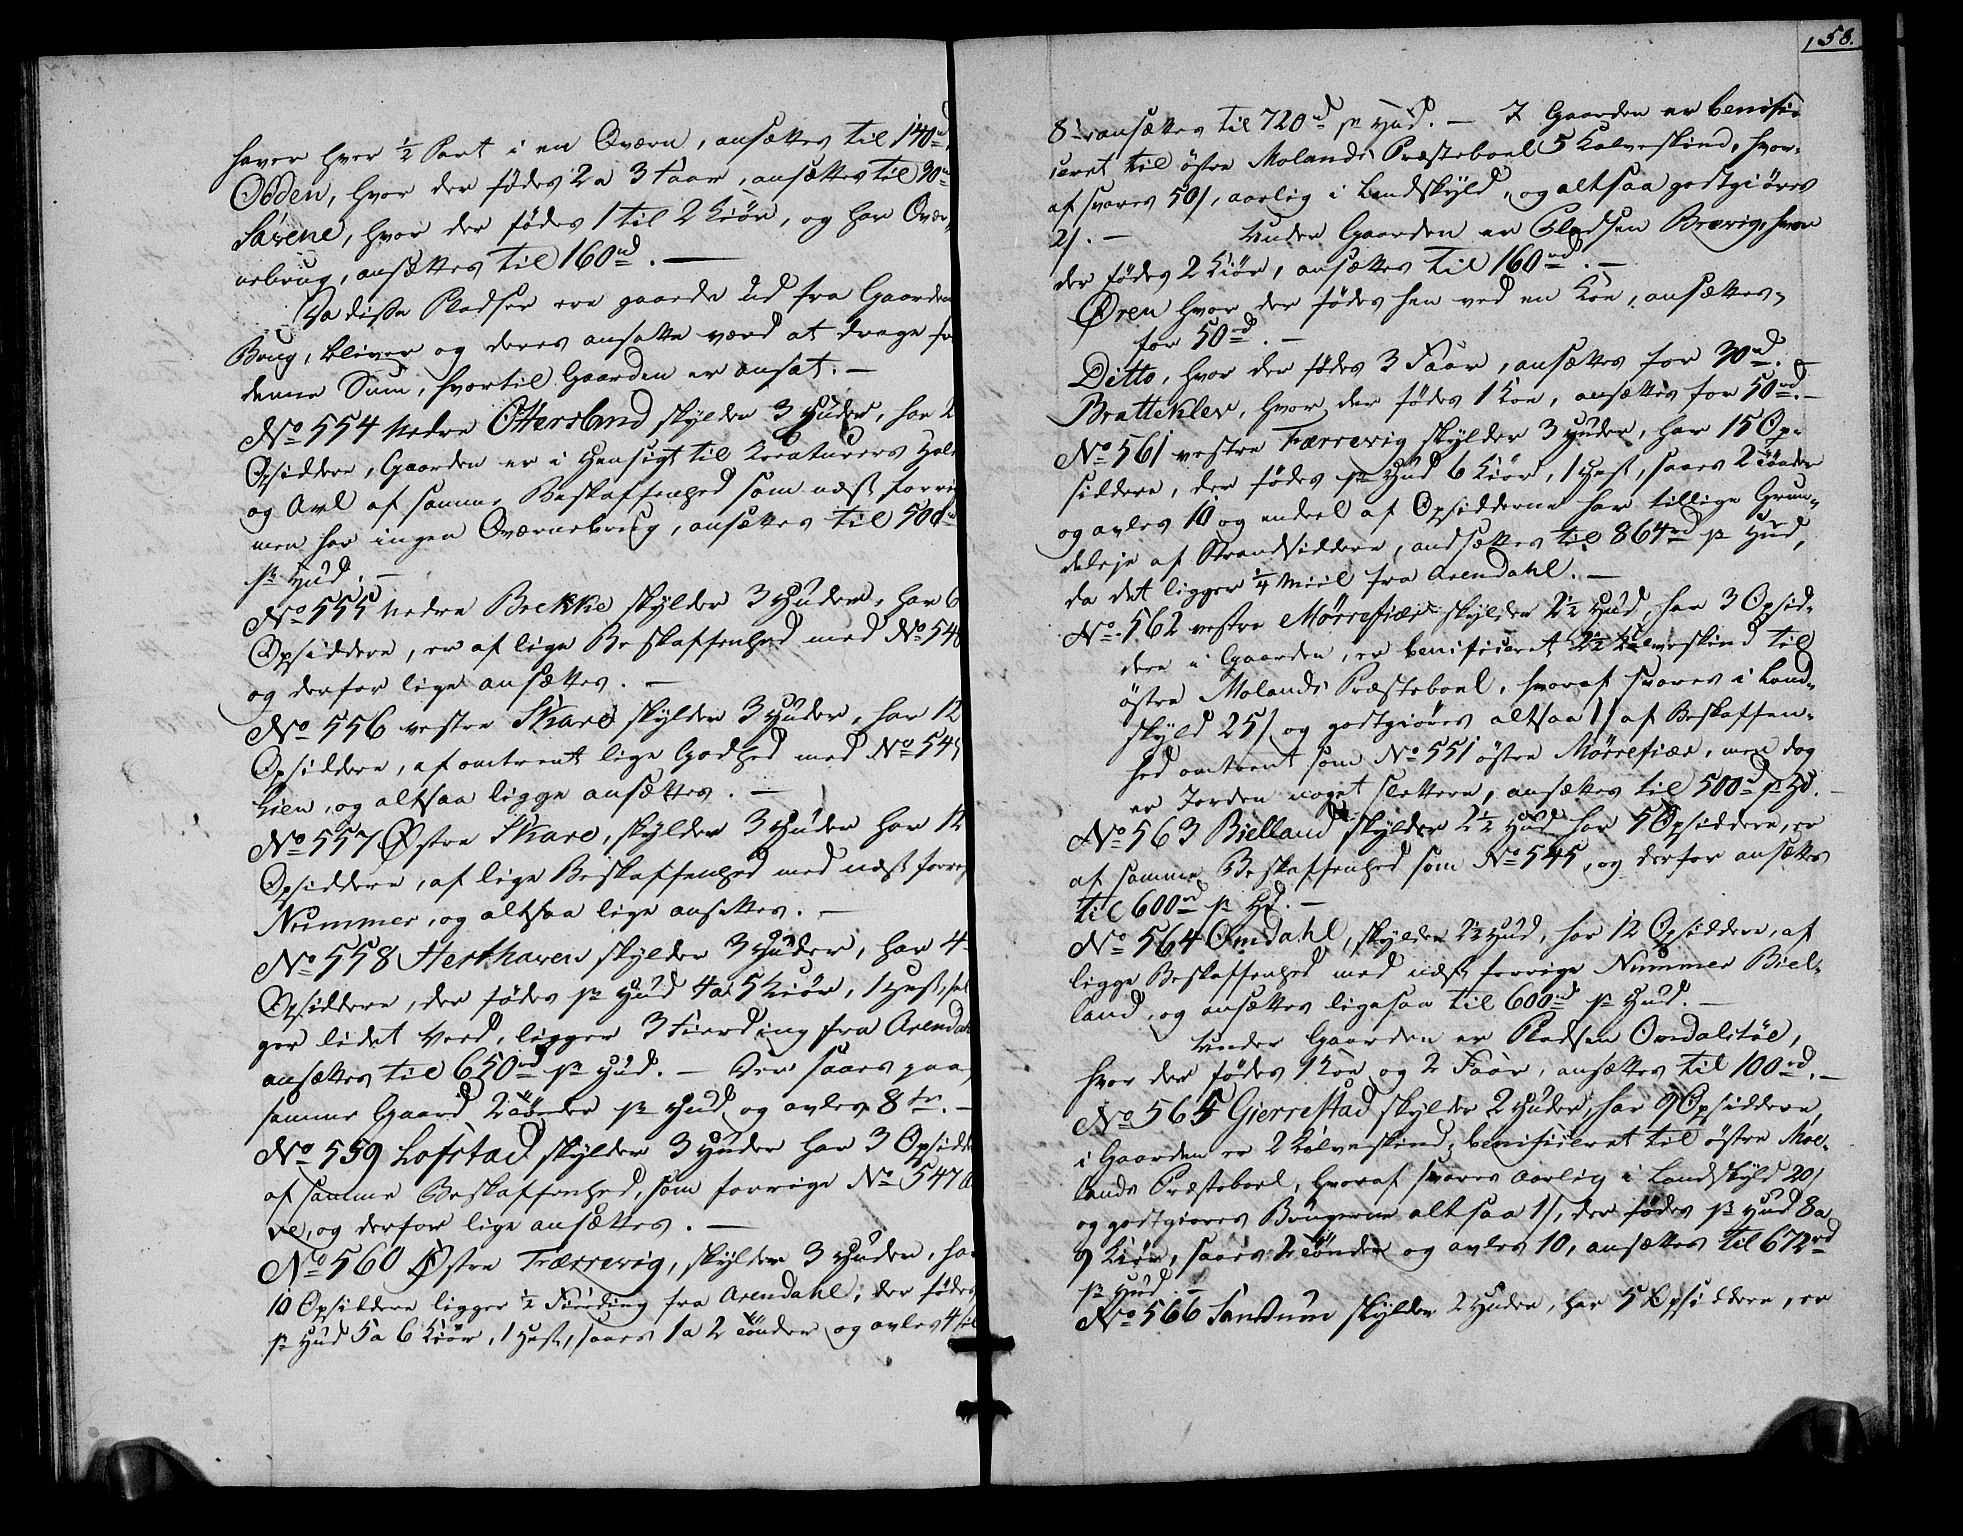 haver hver ½ Part i en Qværn, ansættes til 140 rd
Odden, hvor der fødes 2 a 3 Faar, ansættes til 30 rd
Saxene, hvor der fødes 1 til 2 Kiør, og har Qvær-
nebrug, ansættes til 160 rd. —
Da disse Pladser ere gaaede ud fra Gaardens
Brug, bliver og deres ansatte værd at drage fra
denne Sum, hvortil Gaarden er ansat. —
No 554 Nedre Ottersland skylder 3 Huder, har 2
Opsiddere, Gaarden er i Hensigt til Kreaturers Hold
og Avl af samme Beskaffenhed som næst forrige
men har ingen Qværnebrug, ansættes til 500 rd
pr Hud. —
No 555 Nedre Brekke skylder 3 Huder, har 6
Opsiddere, er af lige Beskaffenhed med No 548
og derfor lige ansættes. —
No 556 vestre Skare skylder 3 Huder, har 12
Opsiddere, af omtrent lige Godhed med No 545
Lien, og altsaa ligge ansættes. —
No 557 Østre Skare, skylder 3 Huder har 12
Opsiddere, af lige Beskaffenhed med næst forrige
Nummer, og altsaa lige ansettes. —
No 558 Herthaven skylder 3 Huder, har 4
Opsiddere, der fødes pr Hud 4 a 5 Kiør, 1 Hest, sel-
ger lidet Veed, ligger 3 Fierding fra Arendahl
ansættes til 650 rd pr Hud. — Der saaes paa
samme Gaard 2 Tønder pr Hud og avles 8 Tr. —
No 559 Lofstad skylder 3 Huder har 3 Opsiddere
af samme Beskaffenhed, som forrige No 547
og derfor lige ansættes. —
No 560 Østre Færrevig, skylder 3 Huder, har
10 Opsiddere ligger ½ Fierding fra Arendahl, der fødes
pr Hud 5 a 6 Kiør, 1 Hest, saaes 1 a 2 Tønder og avles 4 til
158.
8, ansættes til 720 rd pr Hud. — I Gaarden er benifi-
ceret til østre Molands Præsteboel 5 Kalveskind, hvor-
af svares 50 s, aarlig i Landskyld, og altsaa godtgiøres
2 s. — Under Gaarden er Pladsen Brevig, hvor
der fødes 2 Kiør, ansættes til 160 rd. —
Øren hvor der fødes hen ved en Koe, ansættes
for 50 rd. —
Ditto, hvor der fødes 3 Faar, ansættes for 30 rd. —
Bratteklev, hvor der fødes 1 Koe, ansættes for 50 rd. —
No 561 vestre Færrevig skylder 3 Huder, har 15 Op-
siddere, der fødes pr Hud 6 Kiør, 1 Hest, saaes 2 Tønder
og avles 10 og endeel af Opsidderne har tillige Grun-
deleje af Strandsiddere, andsættes til 864 rd pr Hud,
da det ligger ¼ Miil fra Arendahl. —
No 562 vestre Mørrefiær skylder 2½ Hud, har 3 Opsid-
dere i Gaarden, er benificeret 2½ Kalveskind til
østre Molands Præsteboel, hvoraf svares i Land-
skyld 25 s og godtgiøres altsaa 1 s af Beskaffen-
hed omtrent som No 551 østre Mørrefiær, men dog
er Jorden noget slettere, ansættes til 500 rd pr Hd. —
No 563 Bielland skylder 2½ Hud har 5 Opsiddere, er
af samme Beskaffenhed som No 545, og derfor ansættes
til 600 rd pr Hd. —
No 564 Omdahl, skylder 2½ Hud, har 12 Opsiddere, af
ligge Beskaffenhed med næst forrige Nummer Biel-
land, og ansættes ligesaa til 600 rd pr Hud. —
Under Gaarden er Pladsen Omdalstøe,
hvor der fødes 1 Koe og 2 Faar, ansættes til 100 rd. —
No 565 Gierrestad skylder 2 Huder, har 9 Opsiddere,
i Gaarden er 2 Kalveskind, benificeret til østre Moe-
lands Præsteboel, hvoraf svares Aarlig i Landskyld 20 s
og godtgiøres Brugerne altsaa 1 s, der fødes pr Hud 8 a
9 Kiør, saaes 2 Tønder og avles 10, ansættes til 672 rd
pr Hud. —
No 566 Sandum skylder 2 Huder, har 5 Opsiddere, er